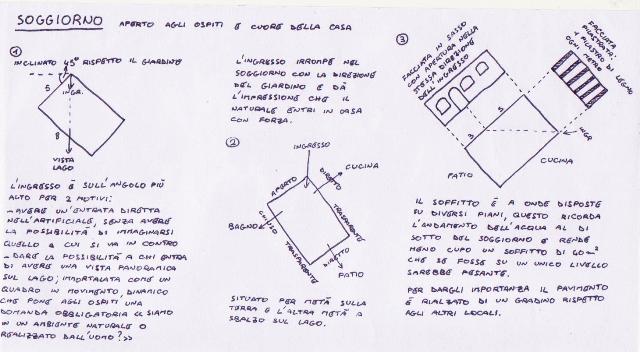 SOGGIORNO APERTO AGLI OSPITI E CUORE DELLA CASA
1
INCLINATO 45° RISPETTO IL GIARDINO
5
INGR.
8
VISTA
LAGO
L'INGRESSO È SULL'ANGOLO PIÙ
ALTO PER 2 MOTIVI:
- AVERE UN'ENTRATA DIRETTA
NELL'ARTIFICIALE, SENZA AVERE
LA POSSIBILITÀ DI IMMAGINARSI
QUELLO A CUI SI VA IN CONTRO
- DARE LA POSSIBILITÀ A CHI ENTRA
DI AVERE UNA VISTA PANORAMICA
SUL LAGO; IMPORTALATA COME UN
QUADRO IN MOVIMENTO, DINAMICO
CHE PONE AGLI OSPITI UNA
DOMANDA OBBLIGATORIA << SIAMO
IN UN AMBIENTE NATURALE O
REALIZZATO DALL'UOMO? >>
L'INGRESSO IRROMPE NEL
SOGGIORNO CON LA DIREZIONE
DEL GIARDINO E DÀ
L'IMPRESSIONE CHE IL
NATURALE ENTRI IN CASA
CON FORZA.
2
INGRESSO
CUCINA
APERTO
DIRETTO
BAGNO
CHIUSO
TRASPARENTE
TRASPARENTE
DIRETTO
PATIO
SITUATO PER METÀ SULLA
TERRA E L'ALTRA METÀ A
SBALZO SUL LAGO.
3
FACCIATA IN SASSO
CON APERTURA NELLA
STESSA DIREZIONE
DELL'INGRESSO
FACCIATA
PILASTRATA:
1 PILASTRO DI LEGNO
OGNI METRO
5
3
INGR
CUCINA
PATIO
IL SOFFITTO È A ONDE DISPOSTE
SU DIVERSI PIANI, QUESTO RICORDA
L'ANDAMENTO DELL'ACQUA AL DI
SOTTO DEL SOGGIORNO E RENDE
MENO CUPO UN SOFFITTO DI 60 m²
CHE SE FOSSE SU UN UNICO LIVELLO
SAREBBE PESANTE.
PER DARGLI IMPORTANZA IL PAVIMENTO
È RIALZATO DI UN GRADINO RISPETTO
AGLI ALTRI LOCALI.